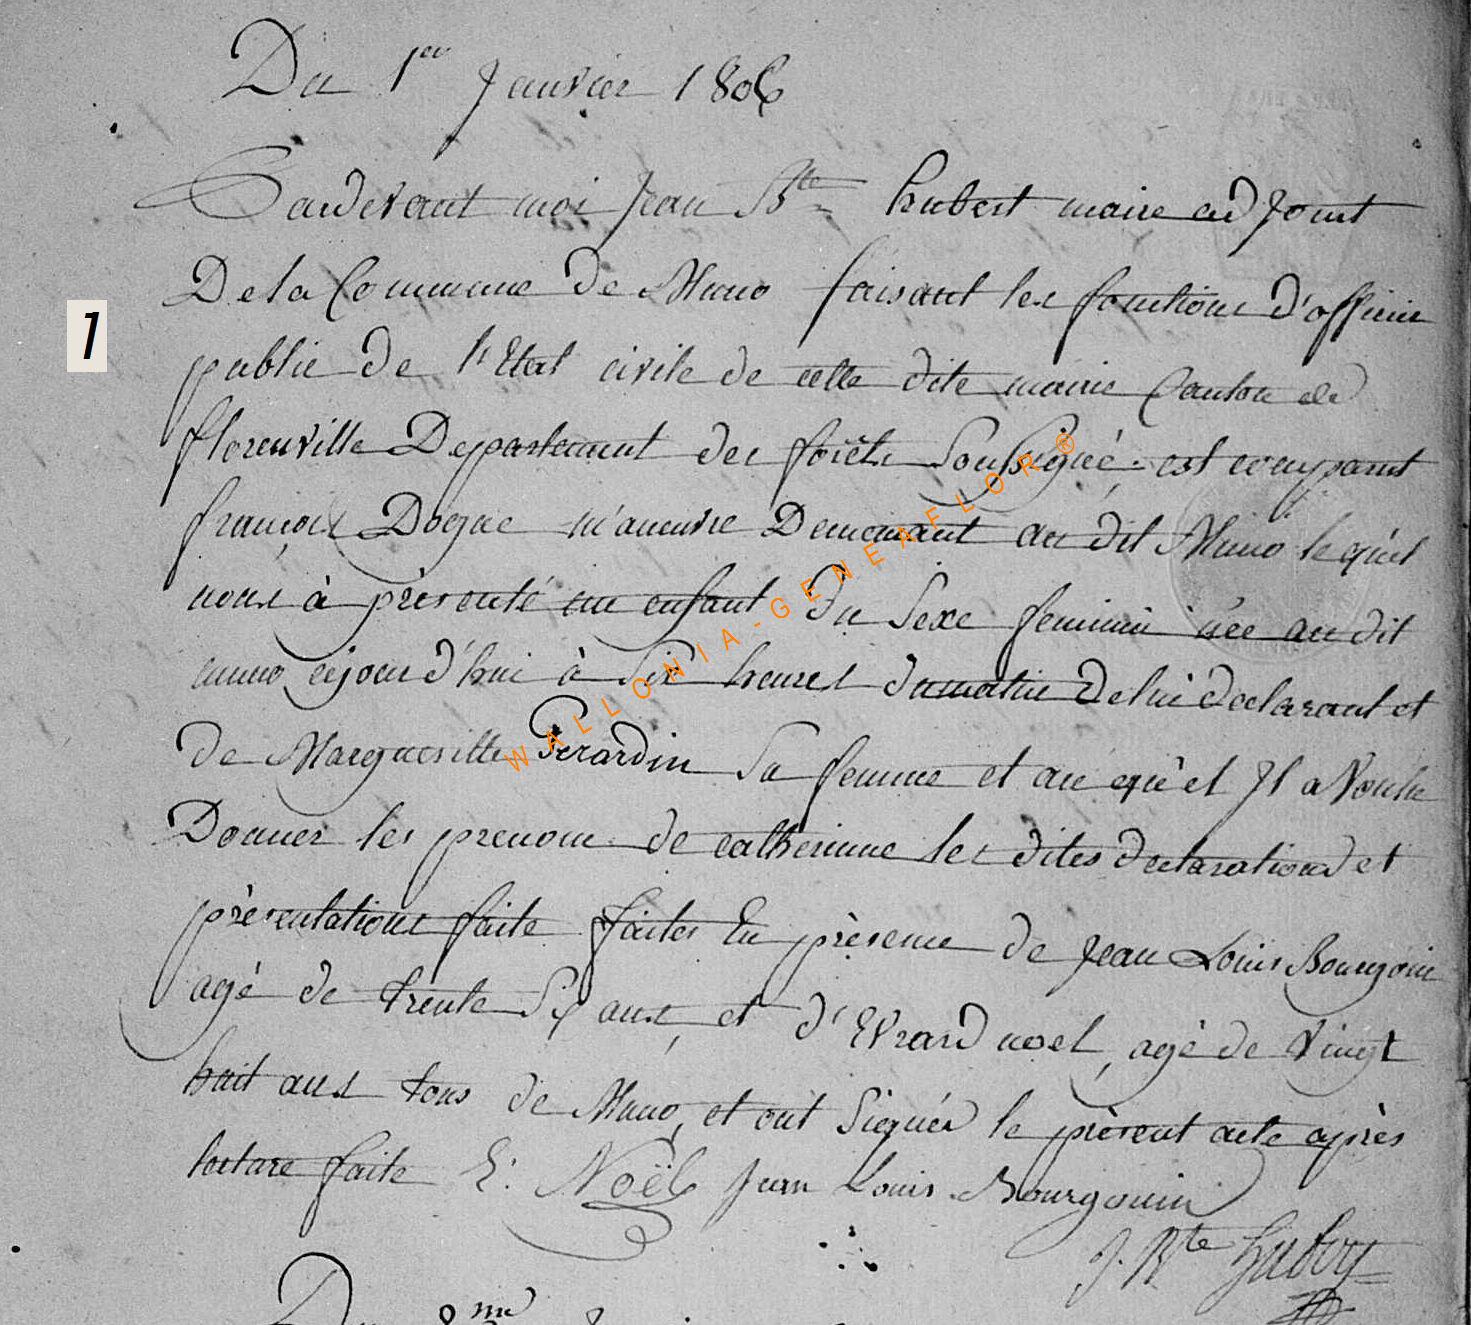 Du 1er Janvier 1806
Pardevant moi Jean Bte hubert maire adjoint
De la Commune de Muno faisant les fonctions d'officier
public de l'Etat civile de cette dite mairie Canton de
florenville Departement des forêts Soussigné, est comparut
1
françois Dogne m'aneuvre Demeurant au dit Muno lequel
nous à prèsenté un enfant Du Sexe feminin née au dit
muno cejourd'hui à Six heures dumatin Delui declarant et
de Margueritte Gerardin Sa femme et au quèl Jl a Voulu
Donner les prenom de catherinne les dites declarations et
prèsentations faite faites En prèsence de Jean Louis Bourgoin
agé de trente Six ans, et d'Evrard noel, agé de Vingt
huit ans tous de Muno, et ont Signés le prèsent acte après
lecture faite E: Noël Jean Louis Bourgouin
J. Bte Hubert
Du 8me
WALLONIA-GENEAFLOR®